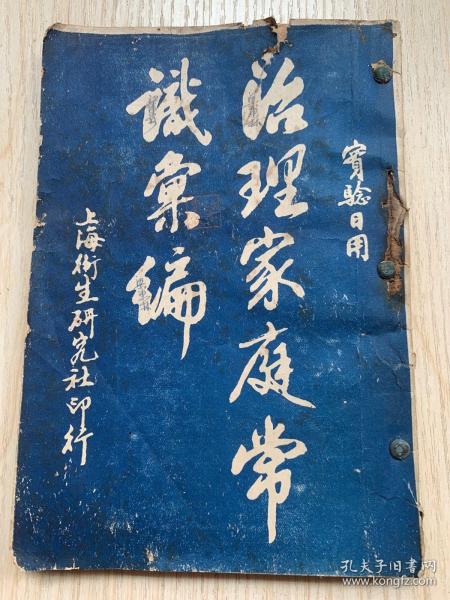 實驗日用
治理家庭常
識彙編
上海衛生研究社印行
孔夫子旧书网
www.kongfz.com